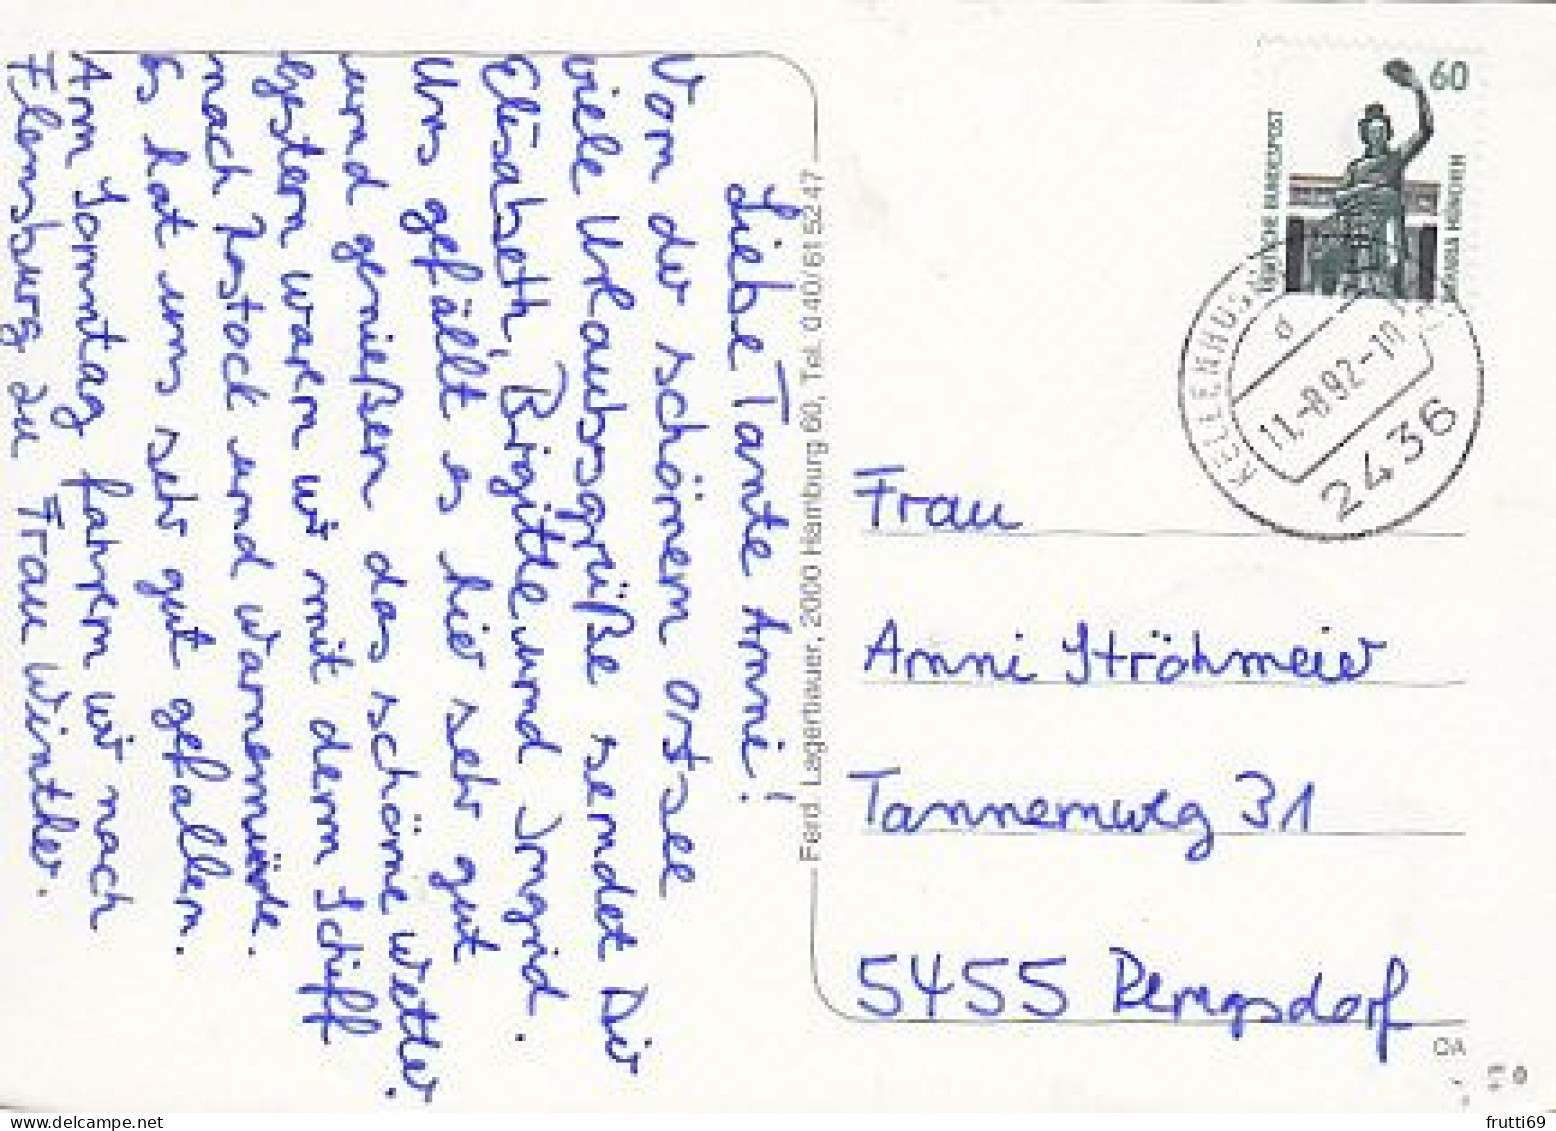 Liebe Tante Anni!
Von der schönen Ostsee
viele Urlaubsgrüße sendet Dir
Elisabeth, Brigitte und Ingrid.
Uns gefällt es hier sehr gut
und genießen das schöne Wetter.
Gestern waren wir mit dem Schiff
nach Rostock und Warnemünde.
Es hat uns sehr gut gefallen.
Am Sonntag fahren wir nach
Flensburg zu Frau Winther.
Ferd. Lagerbauer, 2000 Hamburg 60, Tel. 040/61 52 47
60
DEUTSCHE BUNDESPOST
BAVARIA MÜNCHEN
KELLENHUS
d
11.-8.92-10
2436
Frau
Anni Ströhmeier
Tannenweg 31
5455 Rengsdorf
frutti69